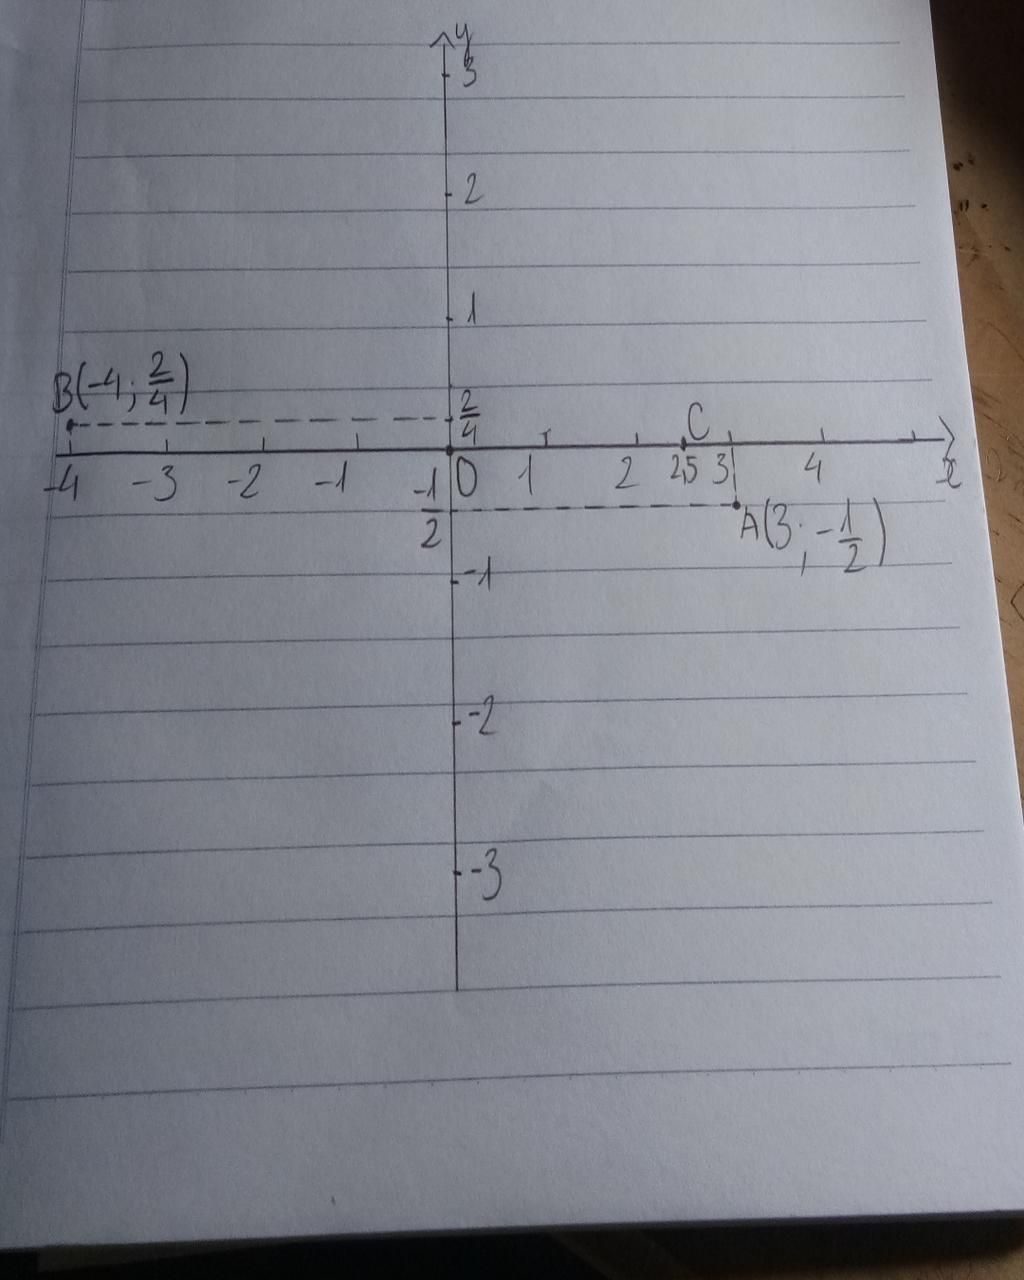 y
3
2
1
B(-4; 2/4)
2/4
C
-4 -3 -2 -1 0 1 2 2,5 3 4 x
-1/2
A(3; -1/2)
-1
-2
-3